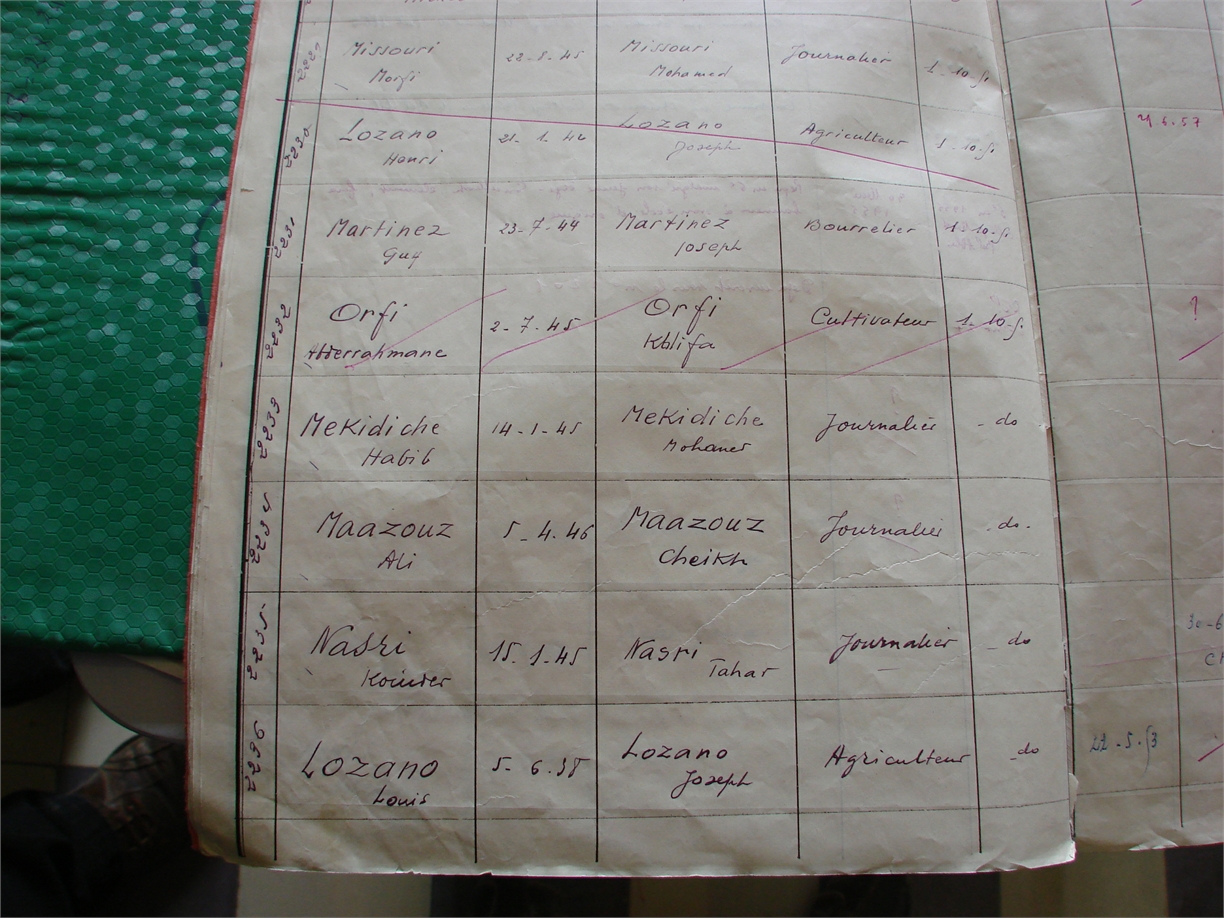 2229 Missouri 22-5-45 Missouri Journalier 1-10-51
Mohamed
2230 Lozano 21-1-44 Lozano Agriculteur 1-10-51 4 6.57
Henri Joseph
2231 Martinez 23-7-44 Martinez Bourrelier 1-10-51
Guy Joseph
2232 Orfi 2-7-45 Orfi Cultivateur 1-10-51
Abderrahmane Khlifa
2233 Mekidiche 14-1-45 Mekidiche Journalier - do
Habib Mohamed
2234 Maazouz 5-4-46 Maazouz Journalier - do -
Ali Cheikh
2235 Nasri 15-1-45 Nasri Journalier - do 30-6
Kouider Tahar
2236 Lozano 5-6-38 Lozano Agriculteur - do 22-5-53
Louis Joseph